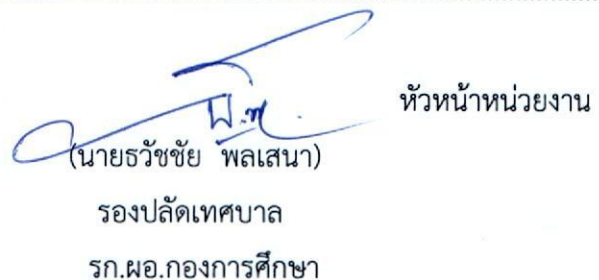 หัวหน้าหน่วยงาน
(นายธวัชชัย พลเสนา)
รองปลัดเทศบาล
รก.ผอ.กองการศึกษา